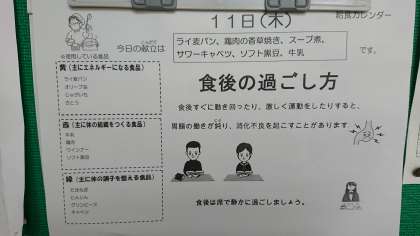 給食カレンダー
11日(木)
こんだて
今日の献立は
ライ麦パン、鶏肉の香草焼き、スープ煮、
サワーキャベツ、ソフト黒豆、牛乳
です。
※使用している食品
黄(主にエネルギーになる食品)
ライ麦パン
オリーブ油
じゃがいも
さとう
食後の過ごし方
食後すぐに動き回ったり、激しく運動をしたりすると、
胃腸の働きが鈍り、消化不良を起こすことがあります。
(主に体の組織をつくる食品)
牛乳
鶏肉
ウインナー
ソフト黒豆
緑(主に体の調子を整える食品)
たまねぎ
にんじん
グリンピース
キャベツ
食後は席で静かに過ごしましょう。